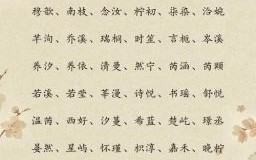 穆歆、南枝、念汝、柠初、柒染、洽婉
芊洵、乔溪、瑞桐、时笙、言栀、岑溪
乔汐、乔依、清曼、然宁、芮涵、芮颐
若溪、若莹、莘漫、诗悦、书瑶、舒悦
温芮、西妤、汐蔓、希蓝、楚屹、璟丞
晏然、星屿、怀瑾、枳淳、嘉禾、晚柠